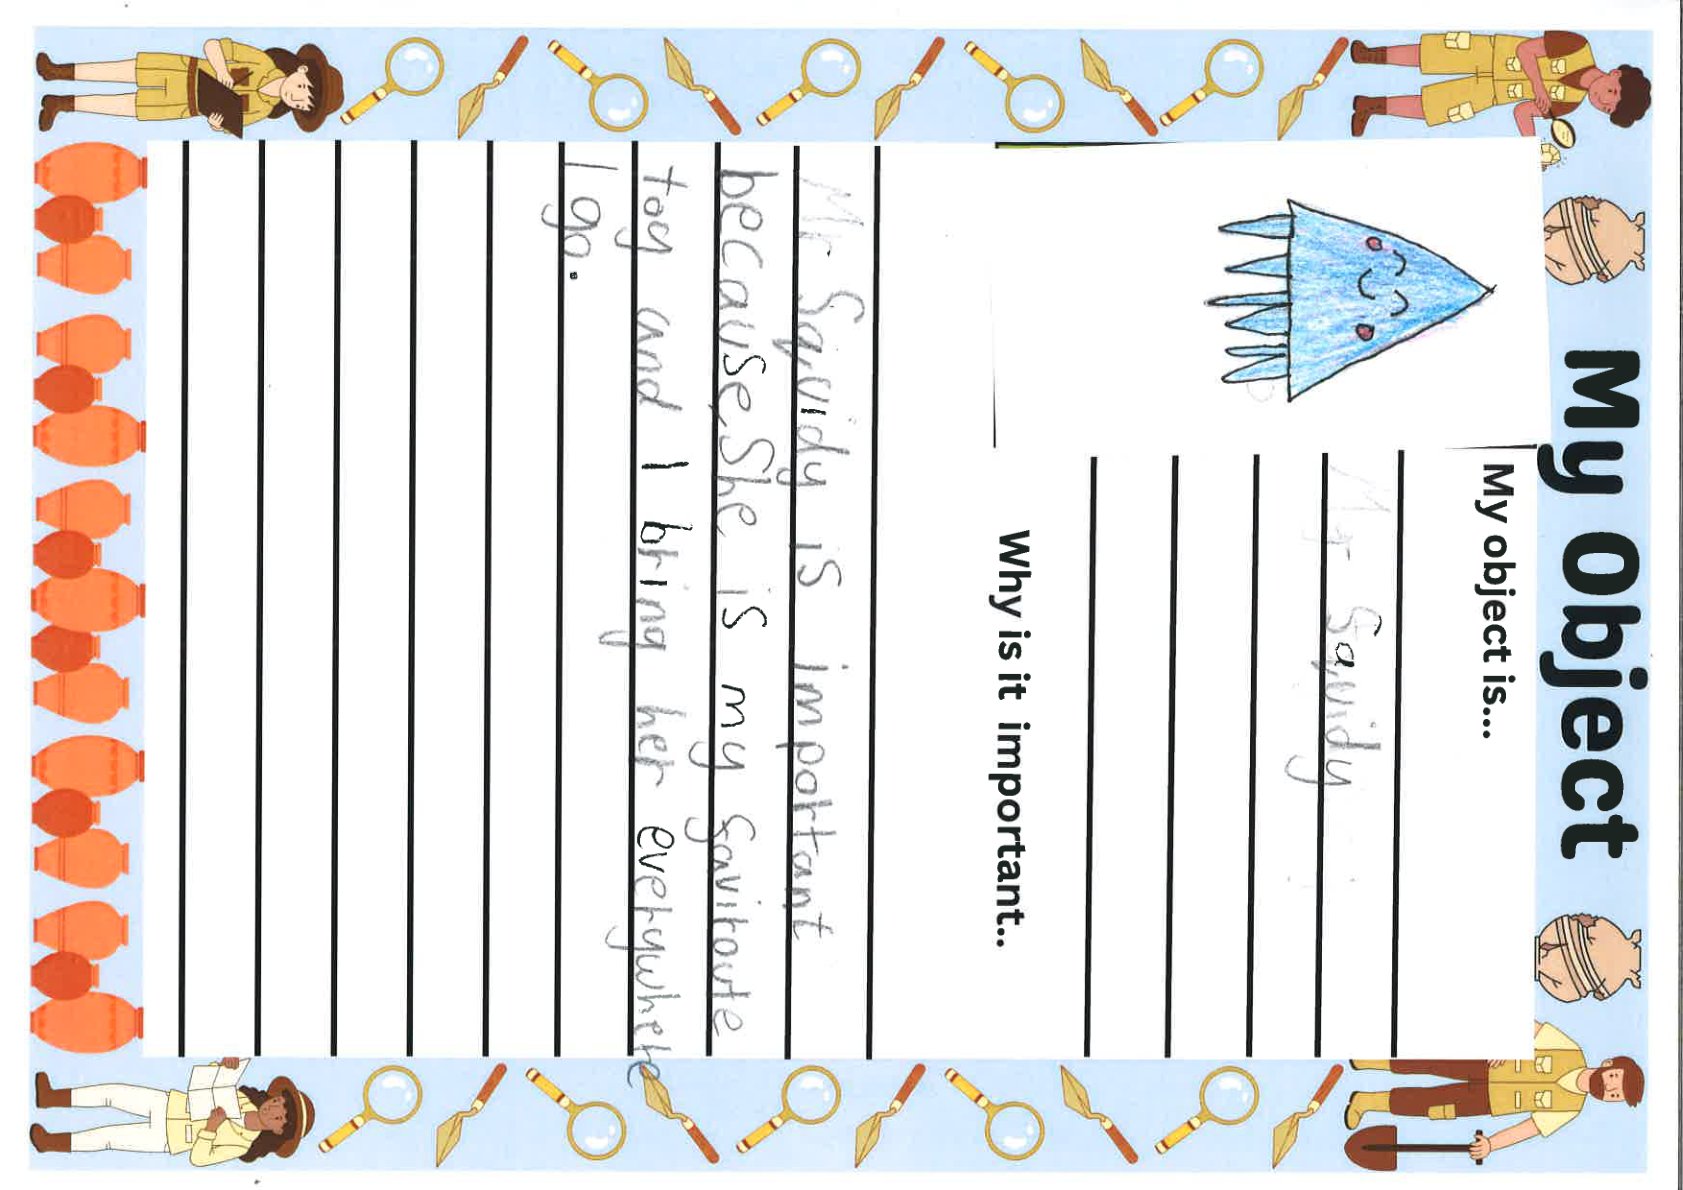 My Object
My object is...
Mr Squidy
Why is it important..
Mr Squidy is important
because She is my faviroute
toy and I bring her everywhere
I go.